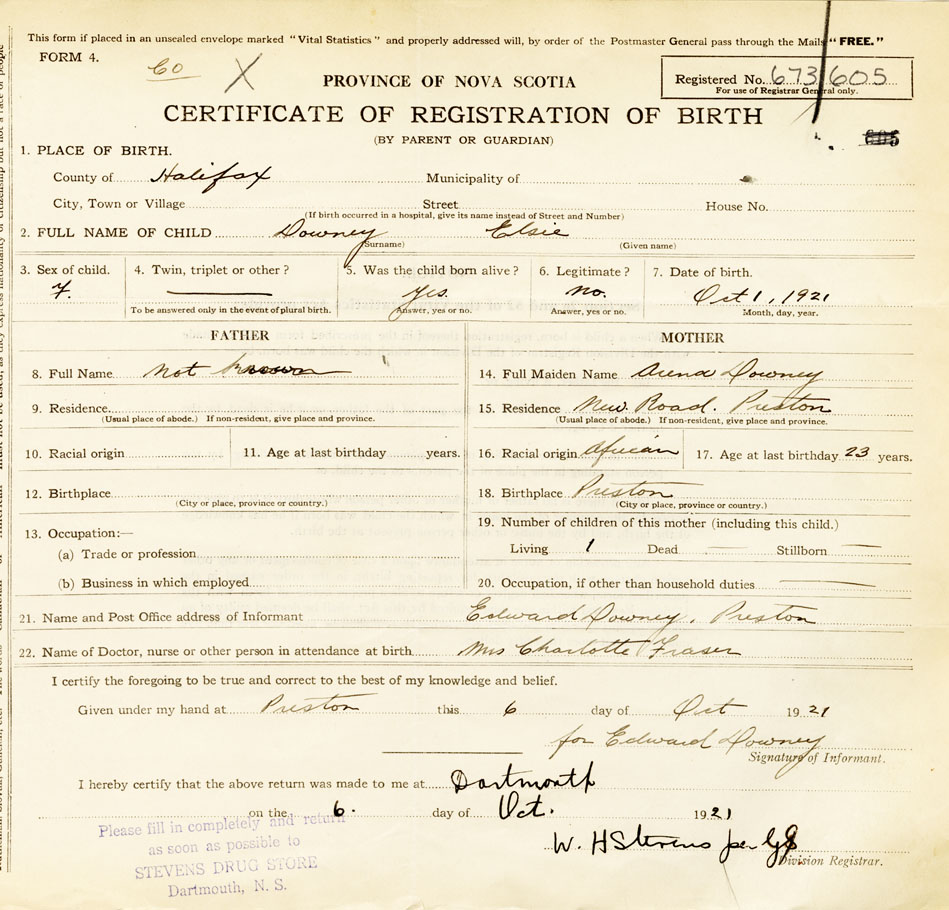 This form if placed in an unsealed envelope marked "Vital Statistics" and properly addressed will, by order of the Postmaster General pass through the Mails "FREE."
FORM 4.
60 X
PROVINCE OF NOVA SCOTIA
Registered No. 673605
For use of Registrar General only.
CERTIFICATE OF REGISTRATION OF BIRTH
(BY PARENT OR GUARDIAN)
605
1. PLACE OF BIRTH.
County of Halifax Municipality of
City, Town or Village Street House No.
(If birth occurred in a hospital, give its name instead of Street and Number)
2. FULL NAME OF CHILD Downey Elsie
(Surname) (Given name)
3. Sex of child. 4. Twin, triplet or other? 5. Was the child born alive? 6. Legitimate? 7. Date of birth.
F. yes. no. Oct 1, 1921
To be answered only in the event of plural birth. Answer, yes or no. Answer, yes or no. Month, day, year.
FATHER MOTHER
8. Full Name not known 14. Full Maiden Name Arena Downey
9. Residence 15. Residence New Road. Preston
(Usual place of abode.) If non-resident, give place and province. (Usual place of abode.) If non-resident, give place and province.
10. Racial origin 11. Age at last birthday years. 16. Racial origin African 17. Age at last birthday 23 years.
12. Birthplace 18. Birthplace Preston
(City or place, province or country.) (City or place, province or country.)
13. Occupation:— 19. Number of children of this mother (including this child.)
(a) Trade or profession Living 1 Dead Stillborn
(b) Business in which employed 20. Occupation, if other than household duties
21. Name and Post Office address of Informant Edward Downey, Preston
22. Name of Doctor, nurse or other person in attendance at birth Mrs Charlotte Fraser
I certify the foregoing to be true and correct to the best of my knowledge and belief.
Given under my hand at Preston this 6 day of Oct 1921
for Edward Downey
Signature of Informant.
I hereby certify that the above return was made to me at Dartmouth
on the 6. day of Oct. 1921
W. H Stevens per
Division Registrar.
Please fill in completely and return
as soon as possible to
STEVENS DRUG STORE
Dartmouth, N. S.